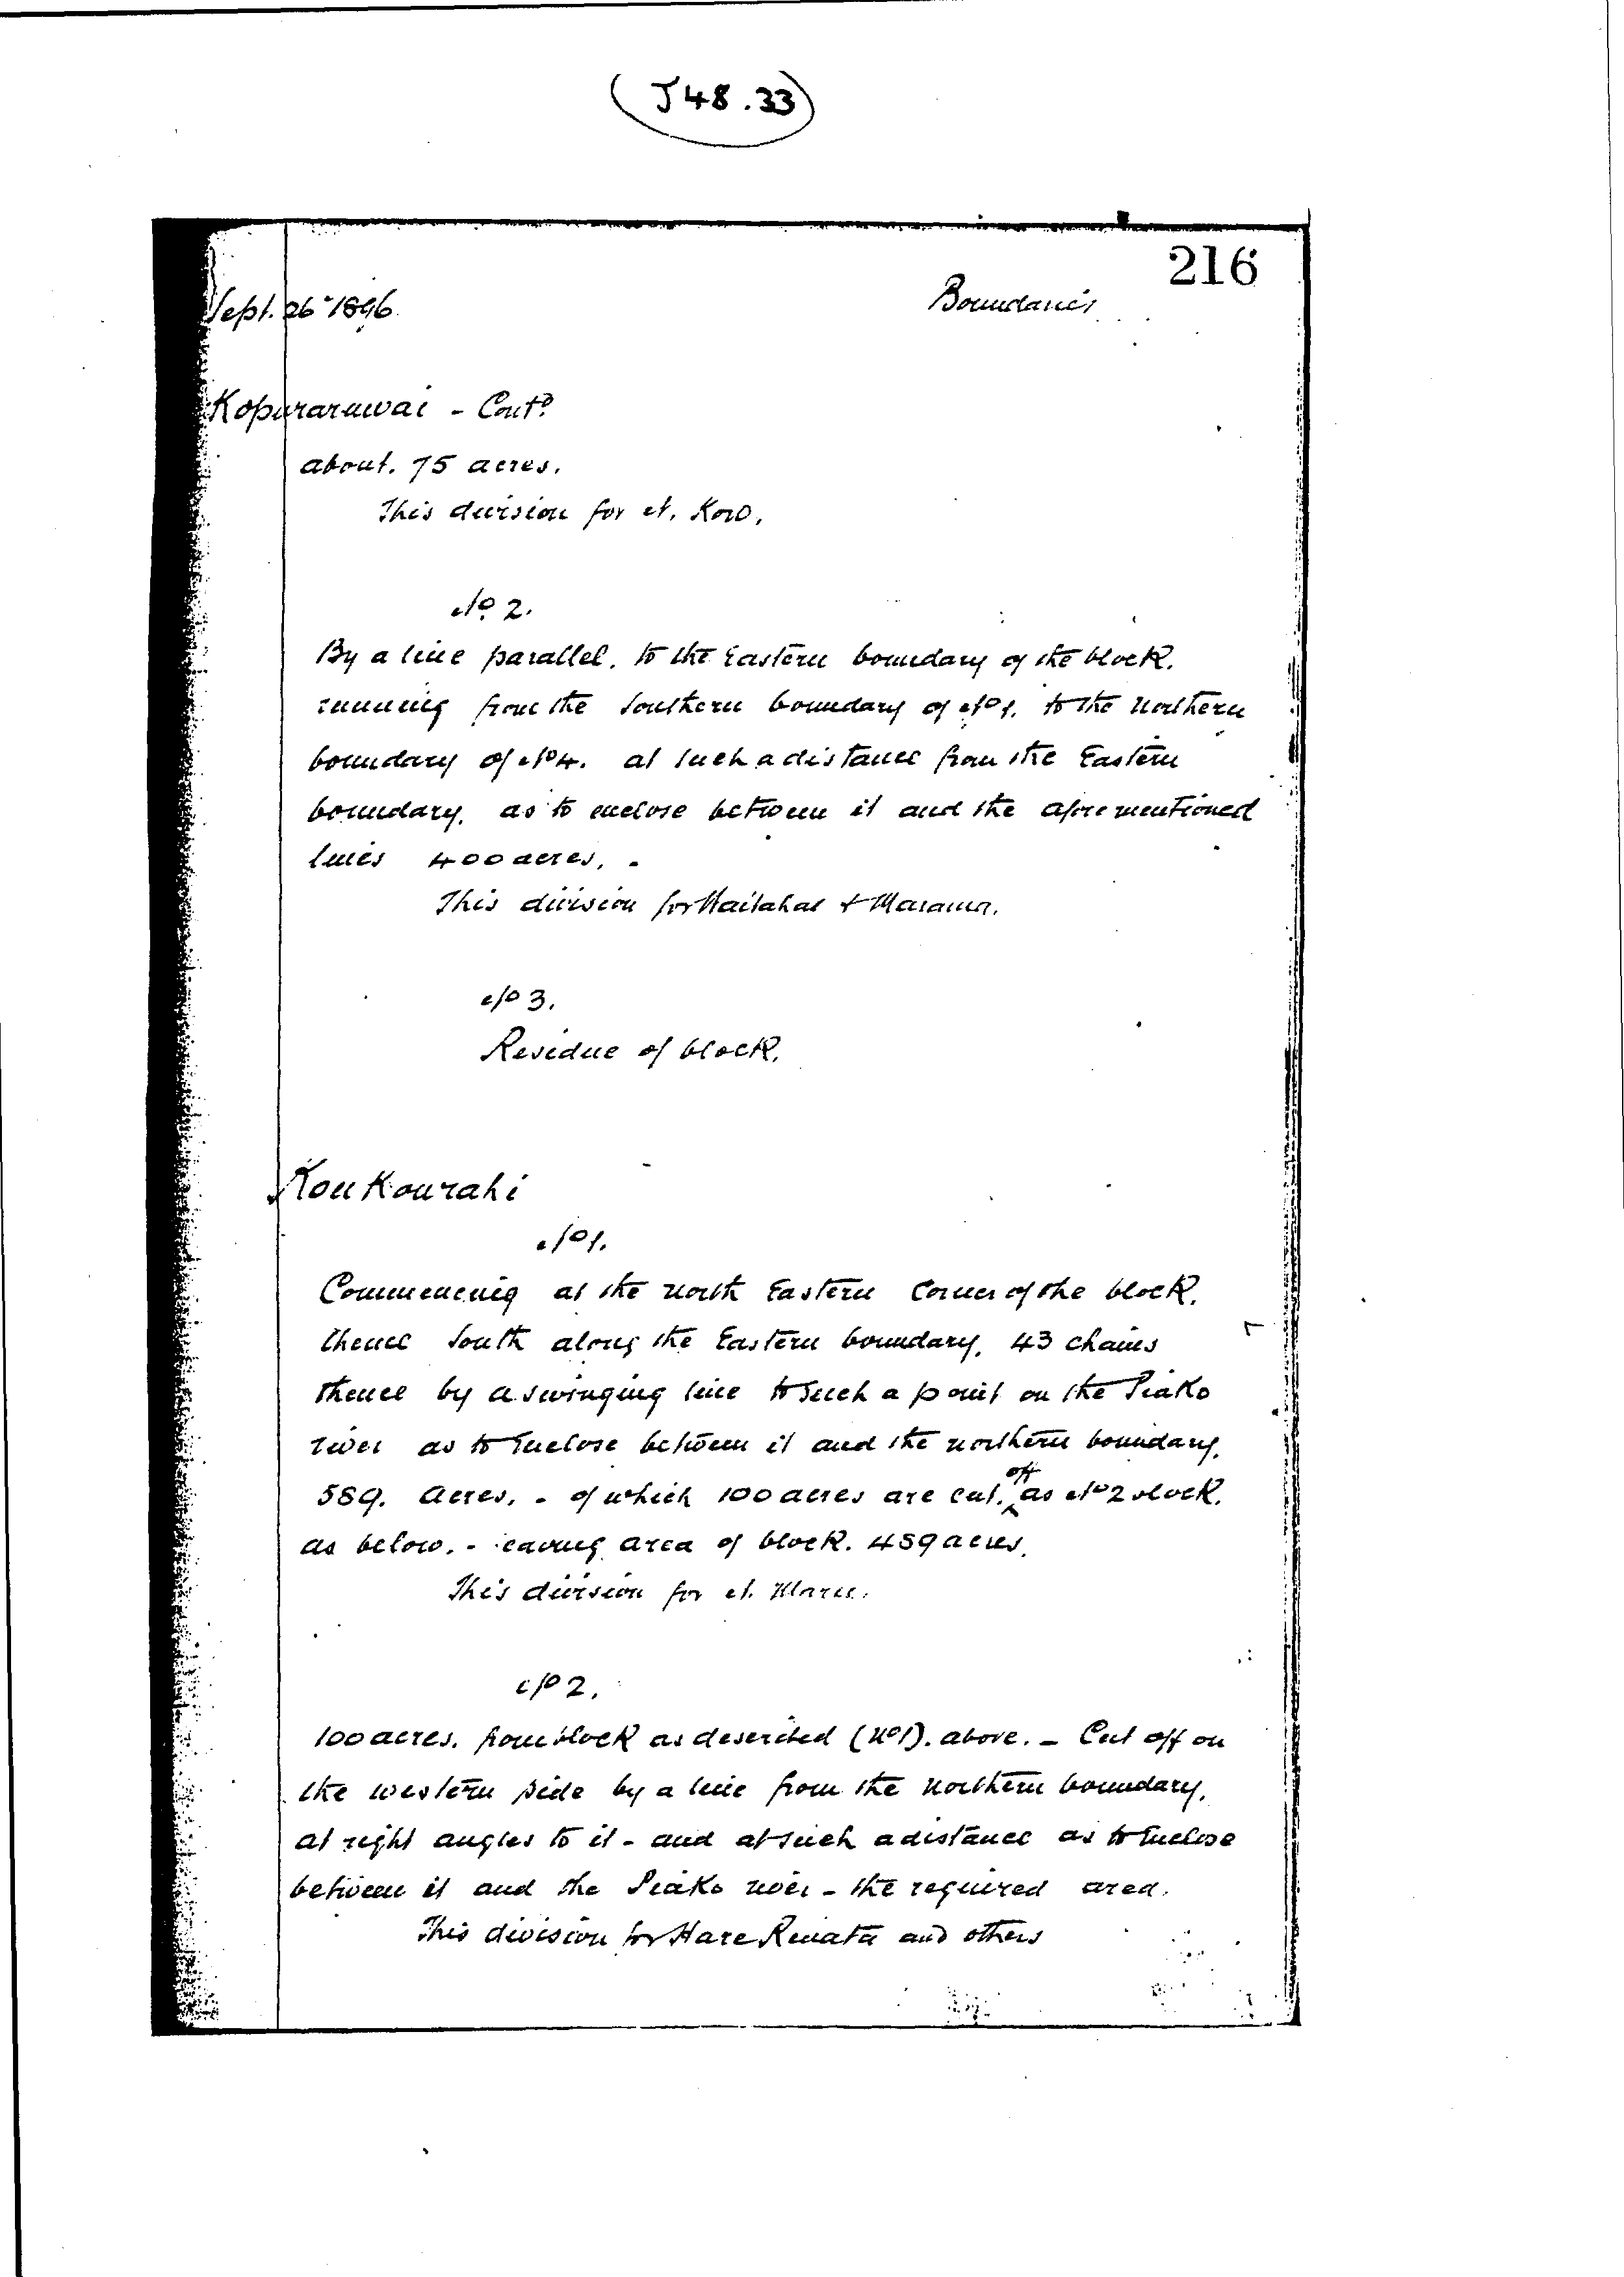 (J48.33)
216
Sept. 26th 1896
Boundaries
Kopurarawai - Contd.
about. 75 acres.
This division for N. Koro.
No. 2.
By a line parallel. to the Eastern boundary of the block.
running from the Southern boundary of No 1. to the Northern
boundary of No 4. at such a distance from the Eastern
boundary. as to enclose between it and the aforementioned
lines 400 acres. -
This division for &
No 3.
Residue of block.
Koukourahi
No 1.
Commencing at the north Eastern Corner of the block.
thence South along the Eastern boundary. 43 chains
thence by a swinging line to such a point on the Piako
river as to Enclose between it and the northern boundary.
589. Acres. - of which 100 acres are cut. off as No 2 block.
as below. - leaving area of block. 489 acres.
This division for N.
No 2.
100 acres. from block as described (No 1). above. - Cut off on
the western side by a line from the Northern boundary.
at right angles to it - and at such a distance as to Enclose
between it and the Piako river - the required area.
This division for Hare Renata and others